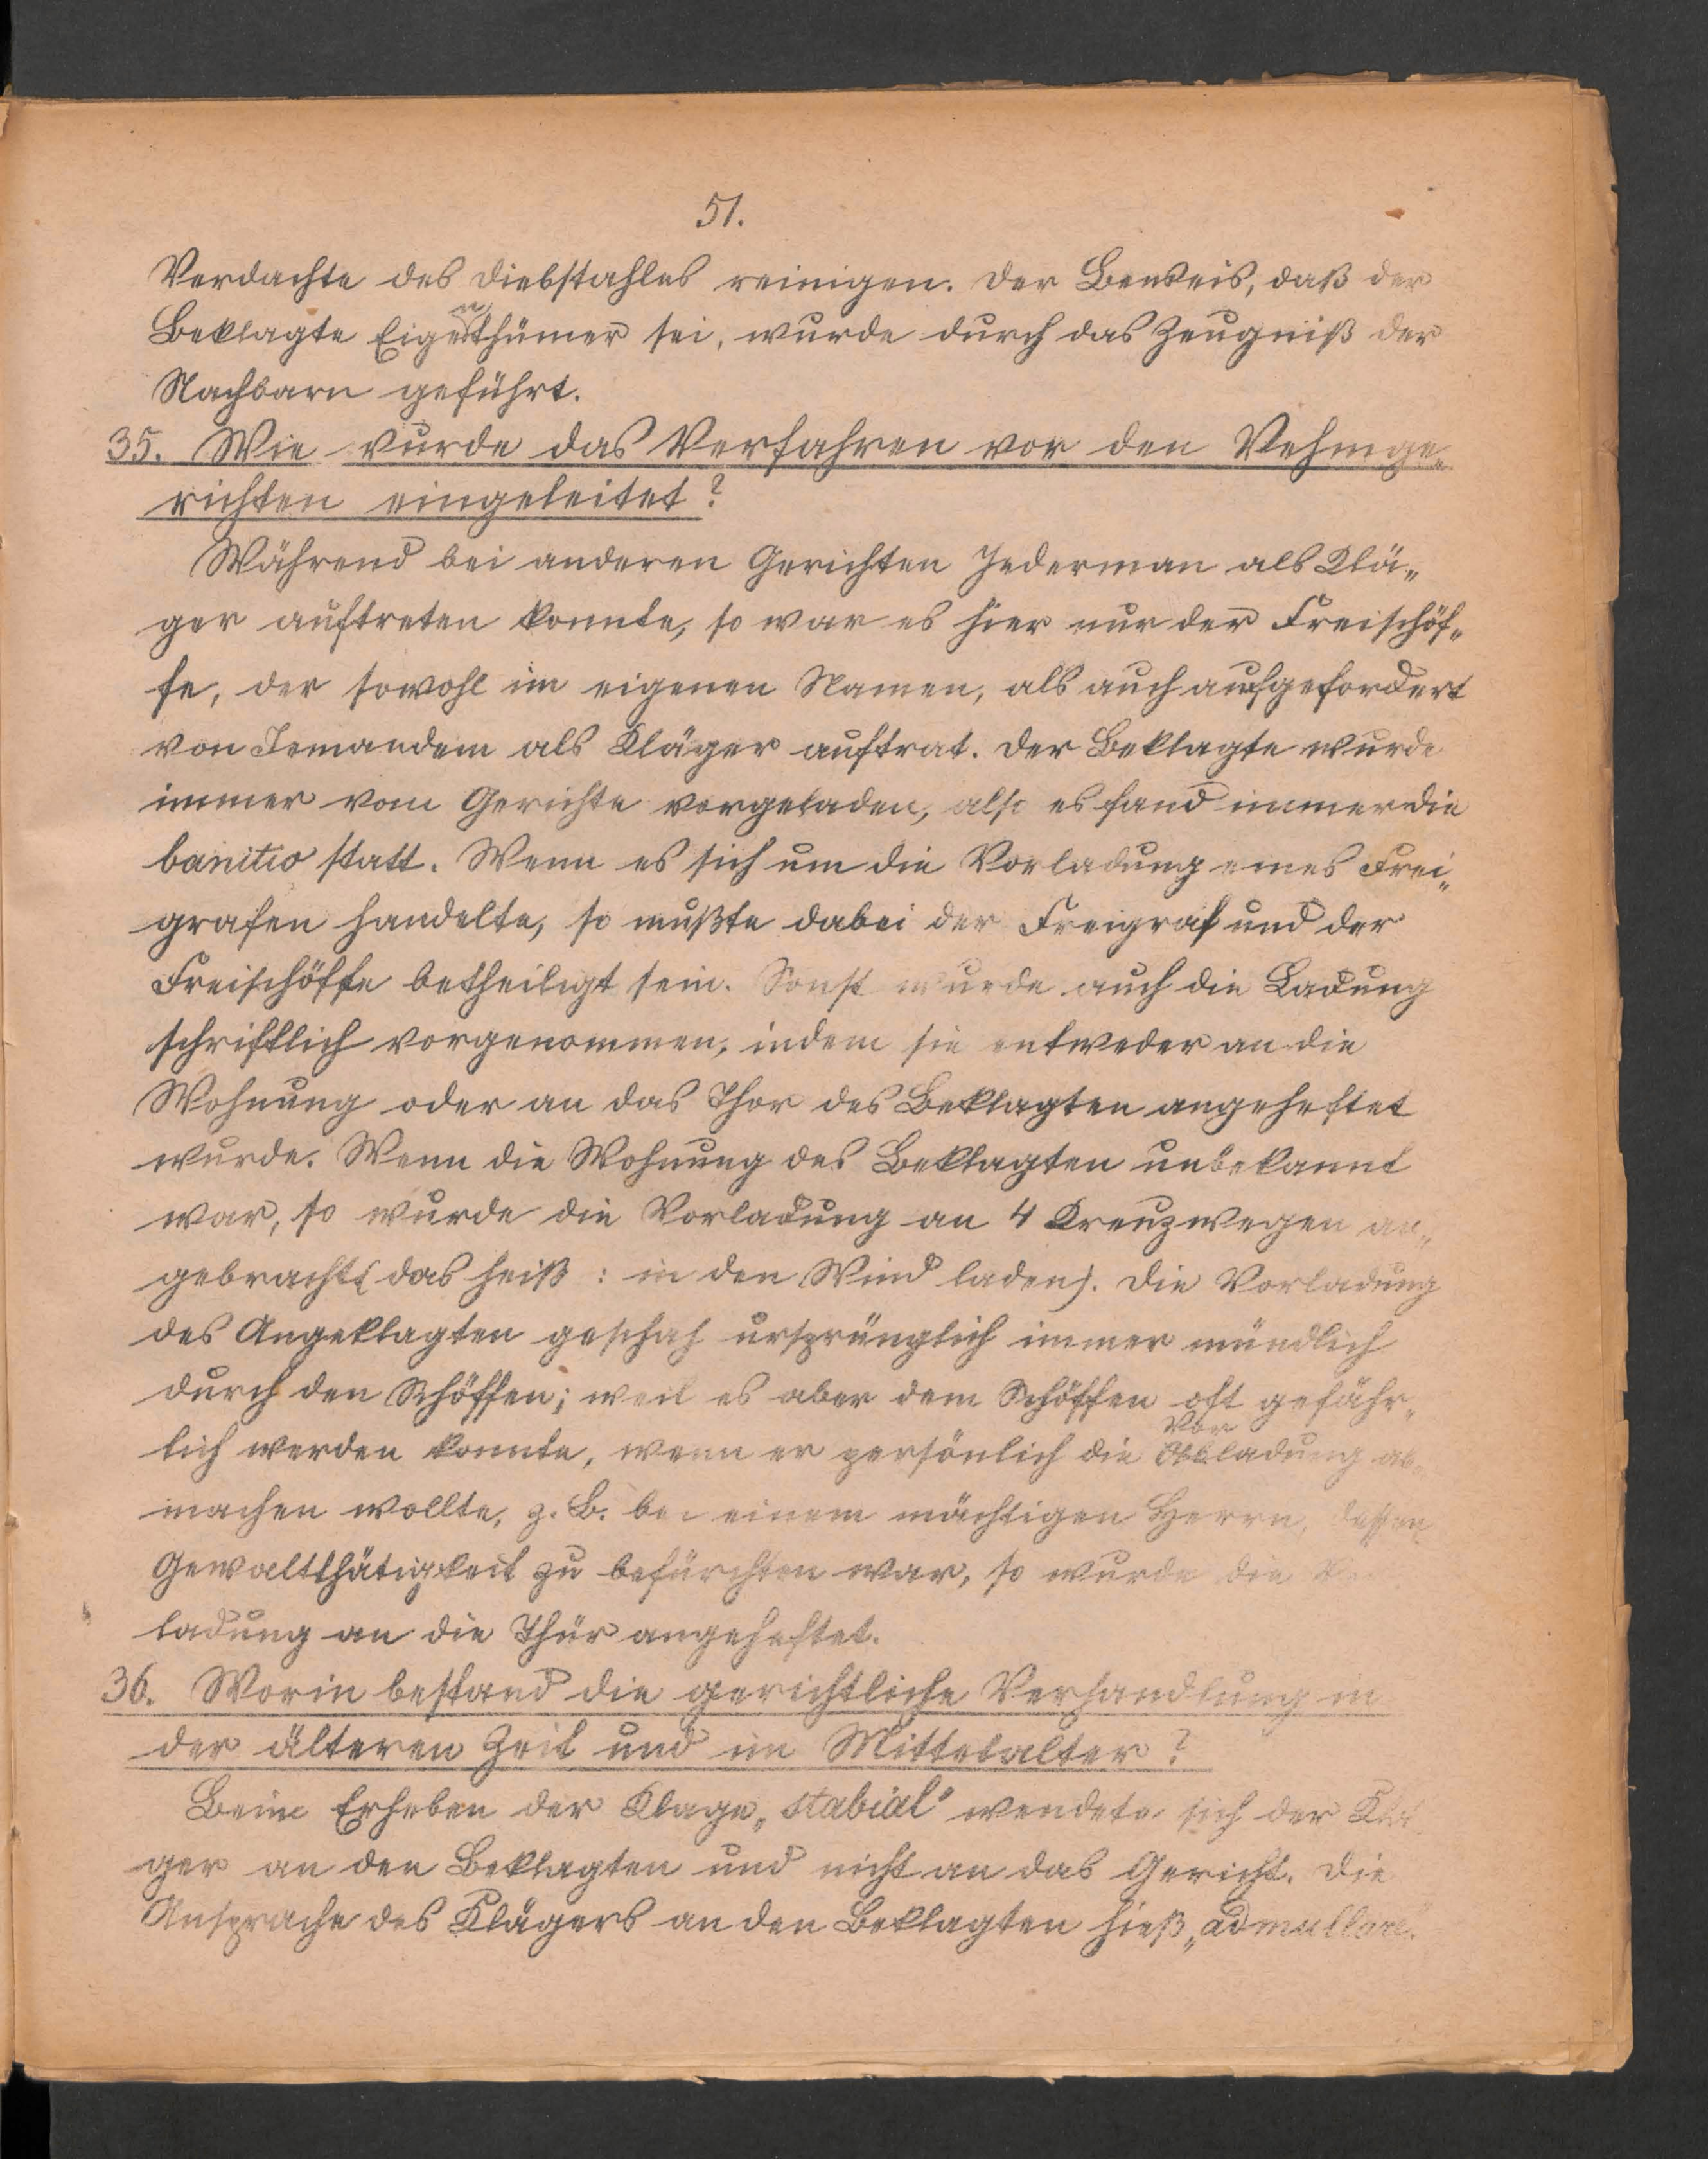 51.
Verdachte des Diebstahles reinigen. Der Beweis, daß der
Beklagte Eigenthümer sei, wurde durch das Zeugniß der
Nachbarn geführt.
35. Wie wurde das Verfahren vor den Vehmge„
richten eingeleitet?
Während bei anderen Gerichten Jederman als Klä„
ger auftreten konnte, so war es hier nur der Freischöf„
fe, der sowohl im eigenen Namen, als auch aufgefordert
von Jemandem als Kläger auftrat. Der Beklagte wurde
immer vom Gerichte vorgeladen, also es fand immer die
banitio statt. Wenn es sich um die Vorladung eines Frei„
grafen handelte, so mußte dabei der Freigraf und der
Freischöffe betheiligt sein. Sonst wurde auch die Ladung
schriftlich vorgenommen, indem sie entweder an die
Wohnung oder an das Thor des Beklagten angeheftet
wurde. Wenn die Wohnung des Beklagten unbekannt
war, so wurde die Vorladung an 4 Kreuzwegen an„
gebracht (das heiß : in den Wind laden). Die Vorladung
des Angeklagten geschah ursprünglich immer mündlich
durch den Schöffen; weil es aber dem Schöffen oft gefähr„
lich werden konnte, wenn er persönlich die Vorladung ab„
machen wollte, z. B. bei einem mächtigen Herrn, dessen
Gewaltthätigkeit zu befürchten war, so wurde die
ladung an die Thür angeheftet.
36. Worin bestand die gerichtliche Verhandlung in
der älteren Zeit und im Mittelalter?
Beim Erheben der Klage „stabial“ wendete sich der Klä„
ger an den Beklagten und nicht an das Gericht. Die
Ansprache des Klägers an den Beklagten hieß „admallare“.